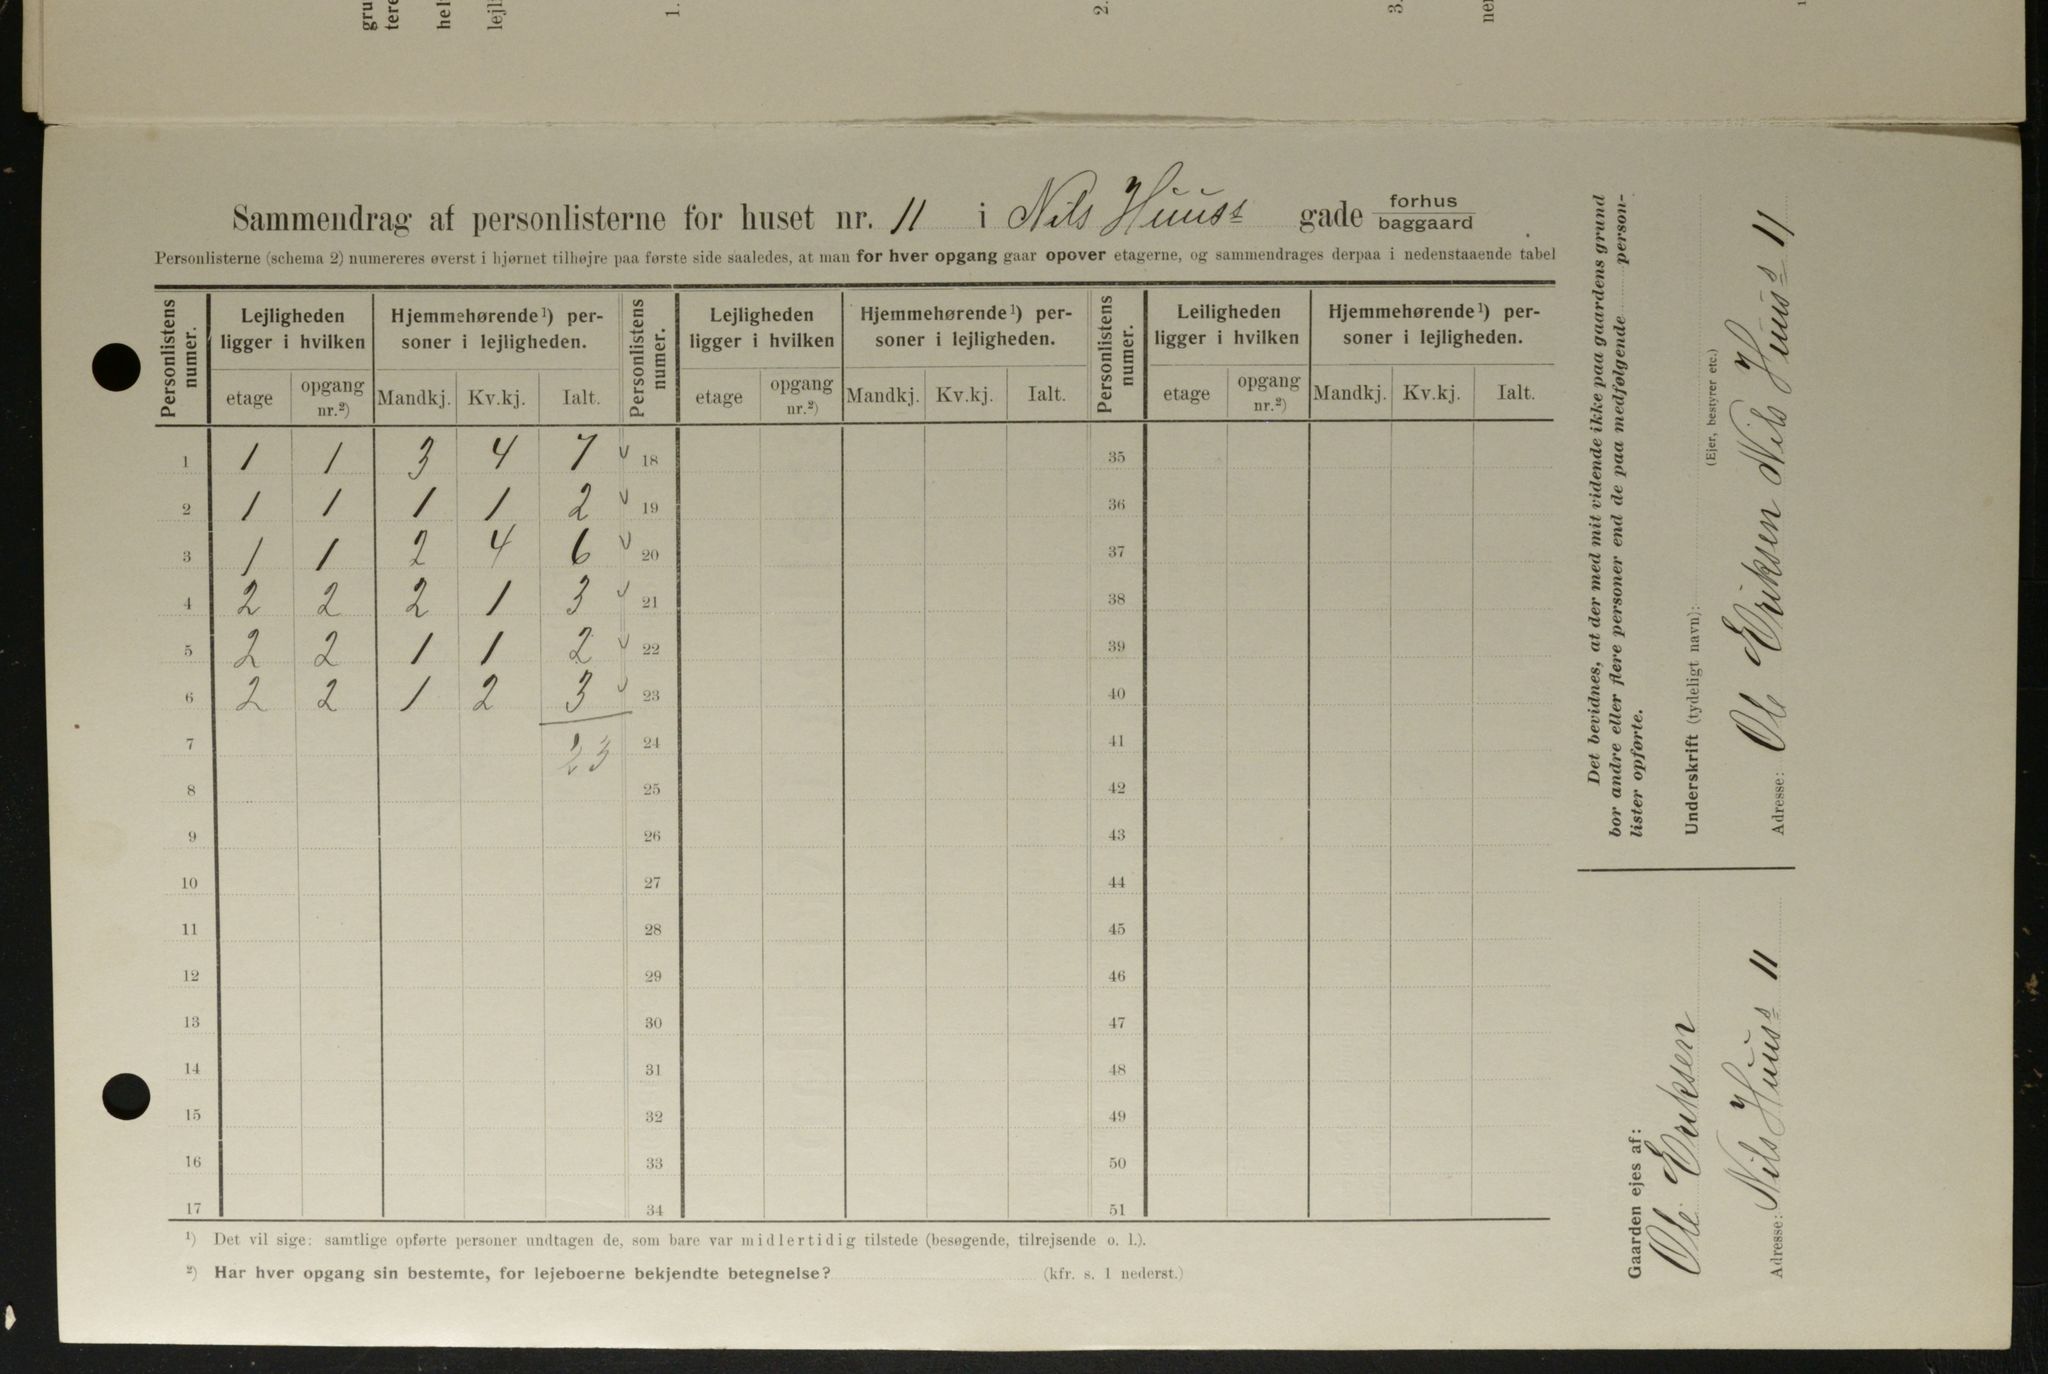 gru
tere
hel
lejli
1.
2.
3.
ner
Sammendrag af personlisterne for huset nr. 11 i Nils Huuss gade forhus baggaard
Personlisterne (schema 2) numereres øverst i hjørnet tilhøjre paa første side saaledes, at man for hver opgang gaar opover etagerne, og sammendrages derpaa i nedenstaaende tabel
Personlistens numer. Lejligheden ligger i hvilken Hjemmehørende¹) personer i lejligheden. Personlistens numer. Lejligheden ligger i hvilken Hjemmehørende¹) personer i lejligheden. Personlistens numer. Leiligheden ligger i hvilken Hjemmehørende¹) personer i lejligheden.
etage opgang nr.²) Mandkj. Kv.kj. Ialt. etage opgang nr.²) Mandkj. Kv.kj. Ialt. etage opgang nr.²) Mandkj. Kv.kj. Ialt.
1 1 1 3 4 7 18 35
2 1 1 1 1 2 19 36
3 1 1 2 4 6 20 37
4 2 2 2 1 3 21 38
5 2 2 1 1 2 22 39
6 2 2 1 2 3 23 40
7 23 24 41
8 25 42
9 26 43
10 27 44
11 28 45
12 29 46
13 30 47
14 31 48
15 32 49
16 33 50
17 34 51
¹) Det vil sige: samtlige opførte personer undtagen de, som bare var midlertidig tilstede (besøgende, tilrejsende o. l.).
²) Har hver opgang sin bestemte, for lejeboerne bekjendte betegnelse? (kfr. s. 1 nederst.)
Det bevidnes, at der med mit vidende ikke paa gaardens grund
bor andre eller flere personer end de paa medfølgende person-
lister opførte.
Underskrift (tydeligt navn):
(Ejer, bestyrer etc.)
Ole Eriksen Nils Huuss 11
Adresse:
Gaarden ejes af:
Ole Eriksen
Adresse: Nils Huuss 11